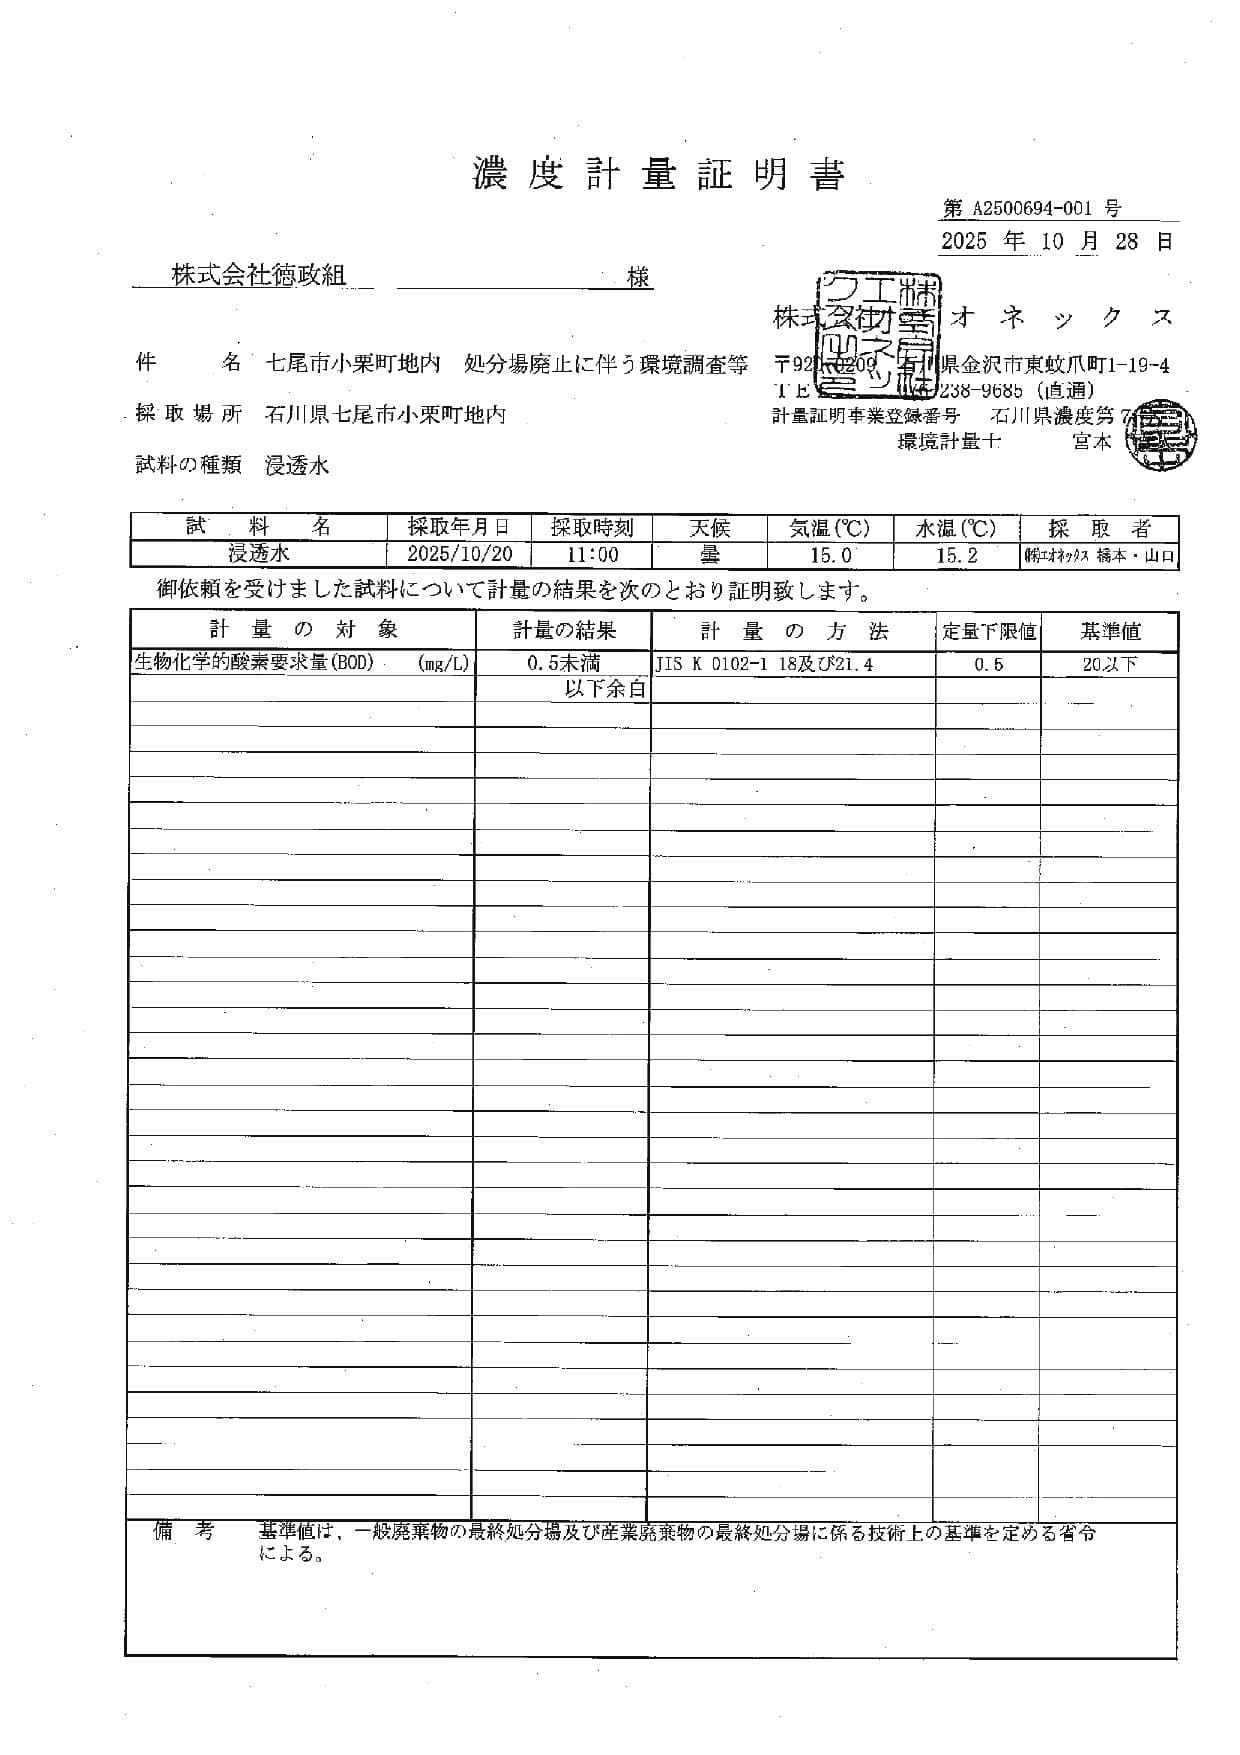 濃度計量証明書
第 A2500694-001 号
2025 年 10 月 28 日
株式会社徳政組 様
株式会社 オネックス
件名 七尾市小栗町地内 処分場廃止に伴う環境調査等
石川県金沢市東蚊爪町1-19-4
238-9685 (直通)
採取場所 石川県七尾市小栗町地内
計量証明事業登録番号 石川県濃度第
環境計量士 宮本
試料の種類 浸透水
試料名 採取年月日 採取時刻 天候 気温(℃) 水温(℃) 採取者
浸透水 2025/10/20 11:00 曇 15.0 15.2 ㈱エオネックス 橋本・山口
御依頼を受けました試料について計量の結果を次のとおり証明致します。
計量の対象 計量の結果 計量の方法 定量下限値 基準値
生物化学的酸素要求量(BOD) (mg/L) 0.5未満 JIS K 0102-1 18及び21.4 0.5 20以下
以下余白
備考 基準値は、一般廃棄物の最終処分場及び産業廃棄物の最終処分場に係る技術上の基準を定める省令
による。